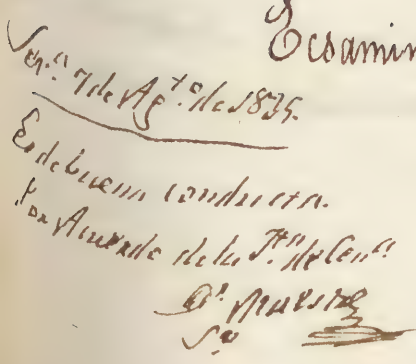 Ecsamin
Ser.ª 7 de Ag.to de 1835.
Es de buena conducta.
Por Acuerdo de la J.ta de Cen.ª
D.r
S.º